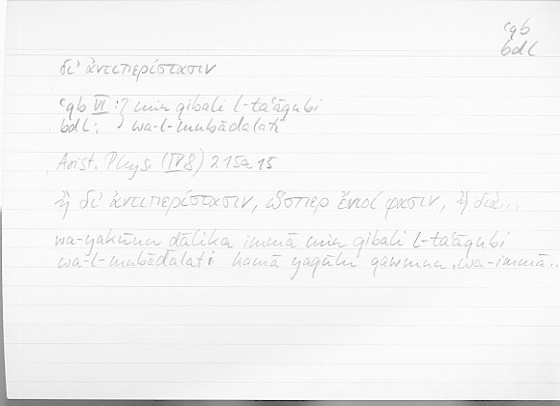 ʿqb
bdl
δι' ἀντιπερίστασιν
ʿqb VI : } min qibali l-taʿāqubi
bdl : } wa-l-mubādalati
Arist. Phys. (IV 8) 215a15
ἢ δι' ἀντιπερίστασιν, ὥσπερ ἔνιοί φασιν, ἢ διὰ...
wa-yakūnu ḏālika immā min qibali l-taʿāqubi
wa-l-mubādalati kamā yaqūlu qawmun wa-immā...